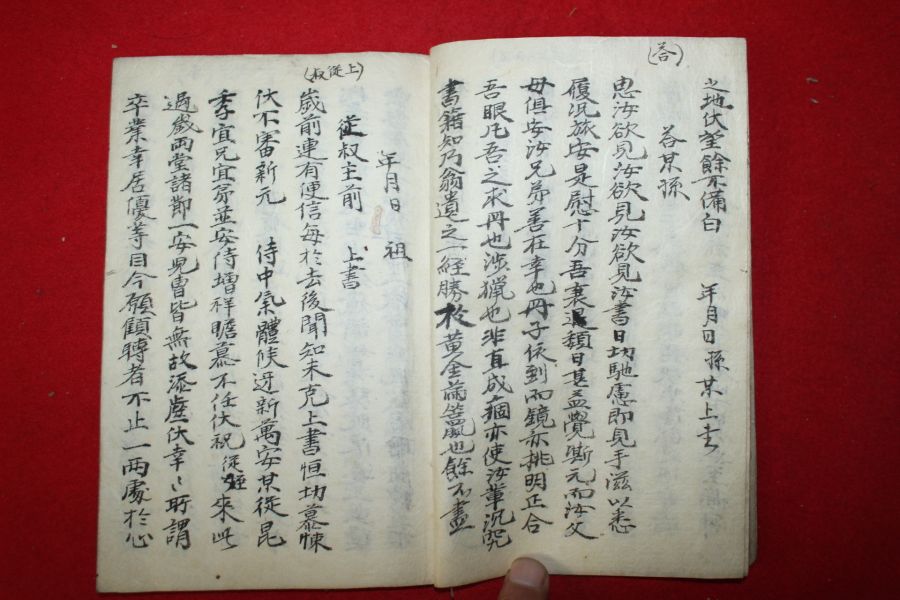 之地伏望餘不備白 年月日孫某上書
(答)
答某孫
思汝欲見汝欲見汝書日切馳慮即見手滋以悉
履況旅安是慰十分吾衰邁頹日甚益覺澌元而汝父
母俱安汝兄弟善在幸也丹子依到而鏡亦挑明正合
吾眼凡吾之求丹也涉獵也非直成痼亦使汝輩沉究
書籍知乃翁遺之一經勝於黃金滿籝也餘不盡
年月日 祖
(上從叔)
從叔主前 上書
歲前連有便信每於去後聞知未克上書恒切慕悚
伏不審新元 侍中氣體候迓新萬安某從昆
季宜兄宜弟並安侍增祥瞻慕不任伏祝從姪來此
過歲兩堂諸節一安兒曹皆無故添齒伏幸〻所謂
卒業幸居優等目今願顧聘者不止一兩處於心